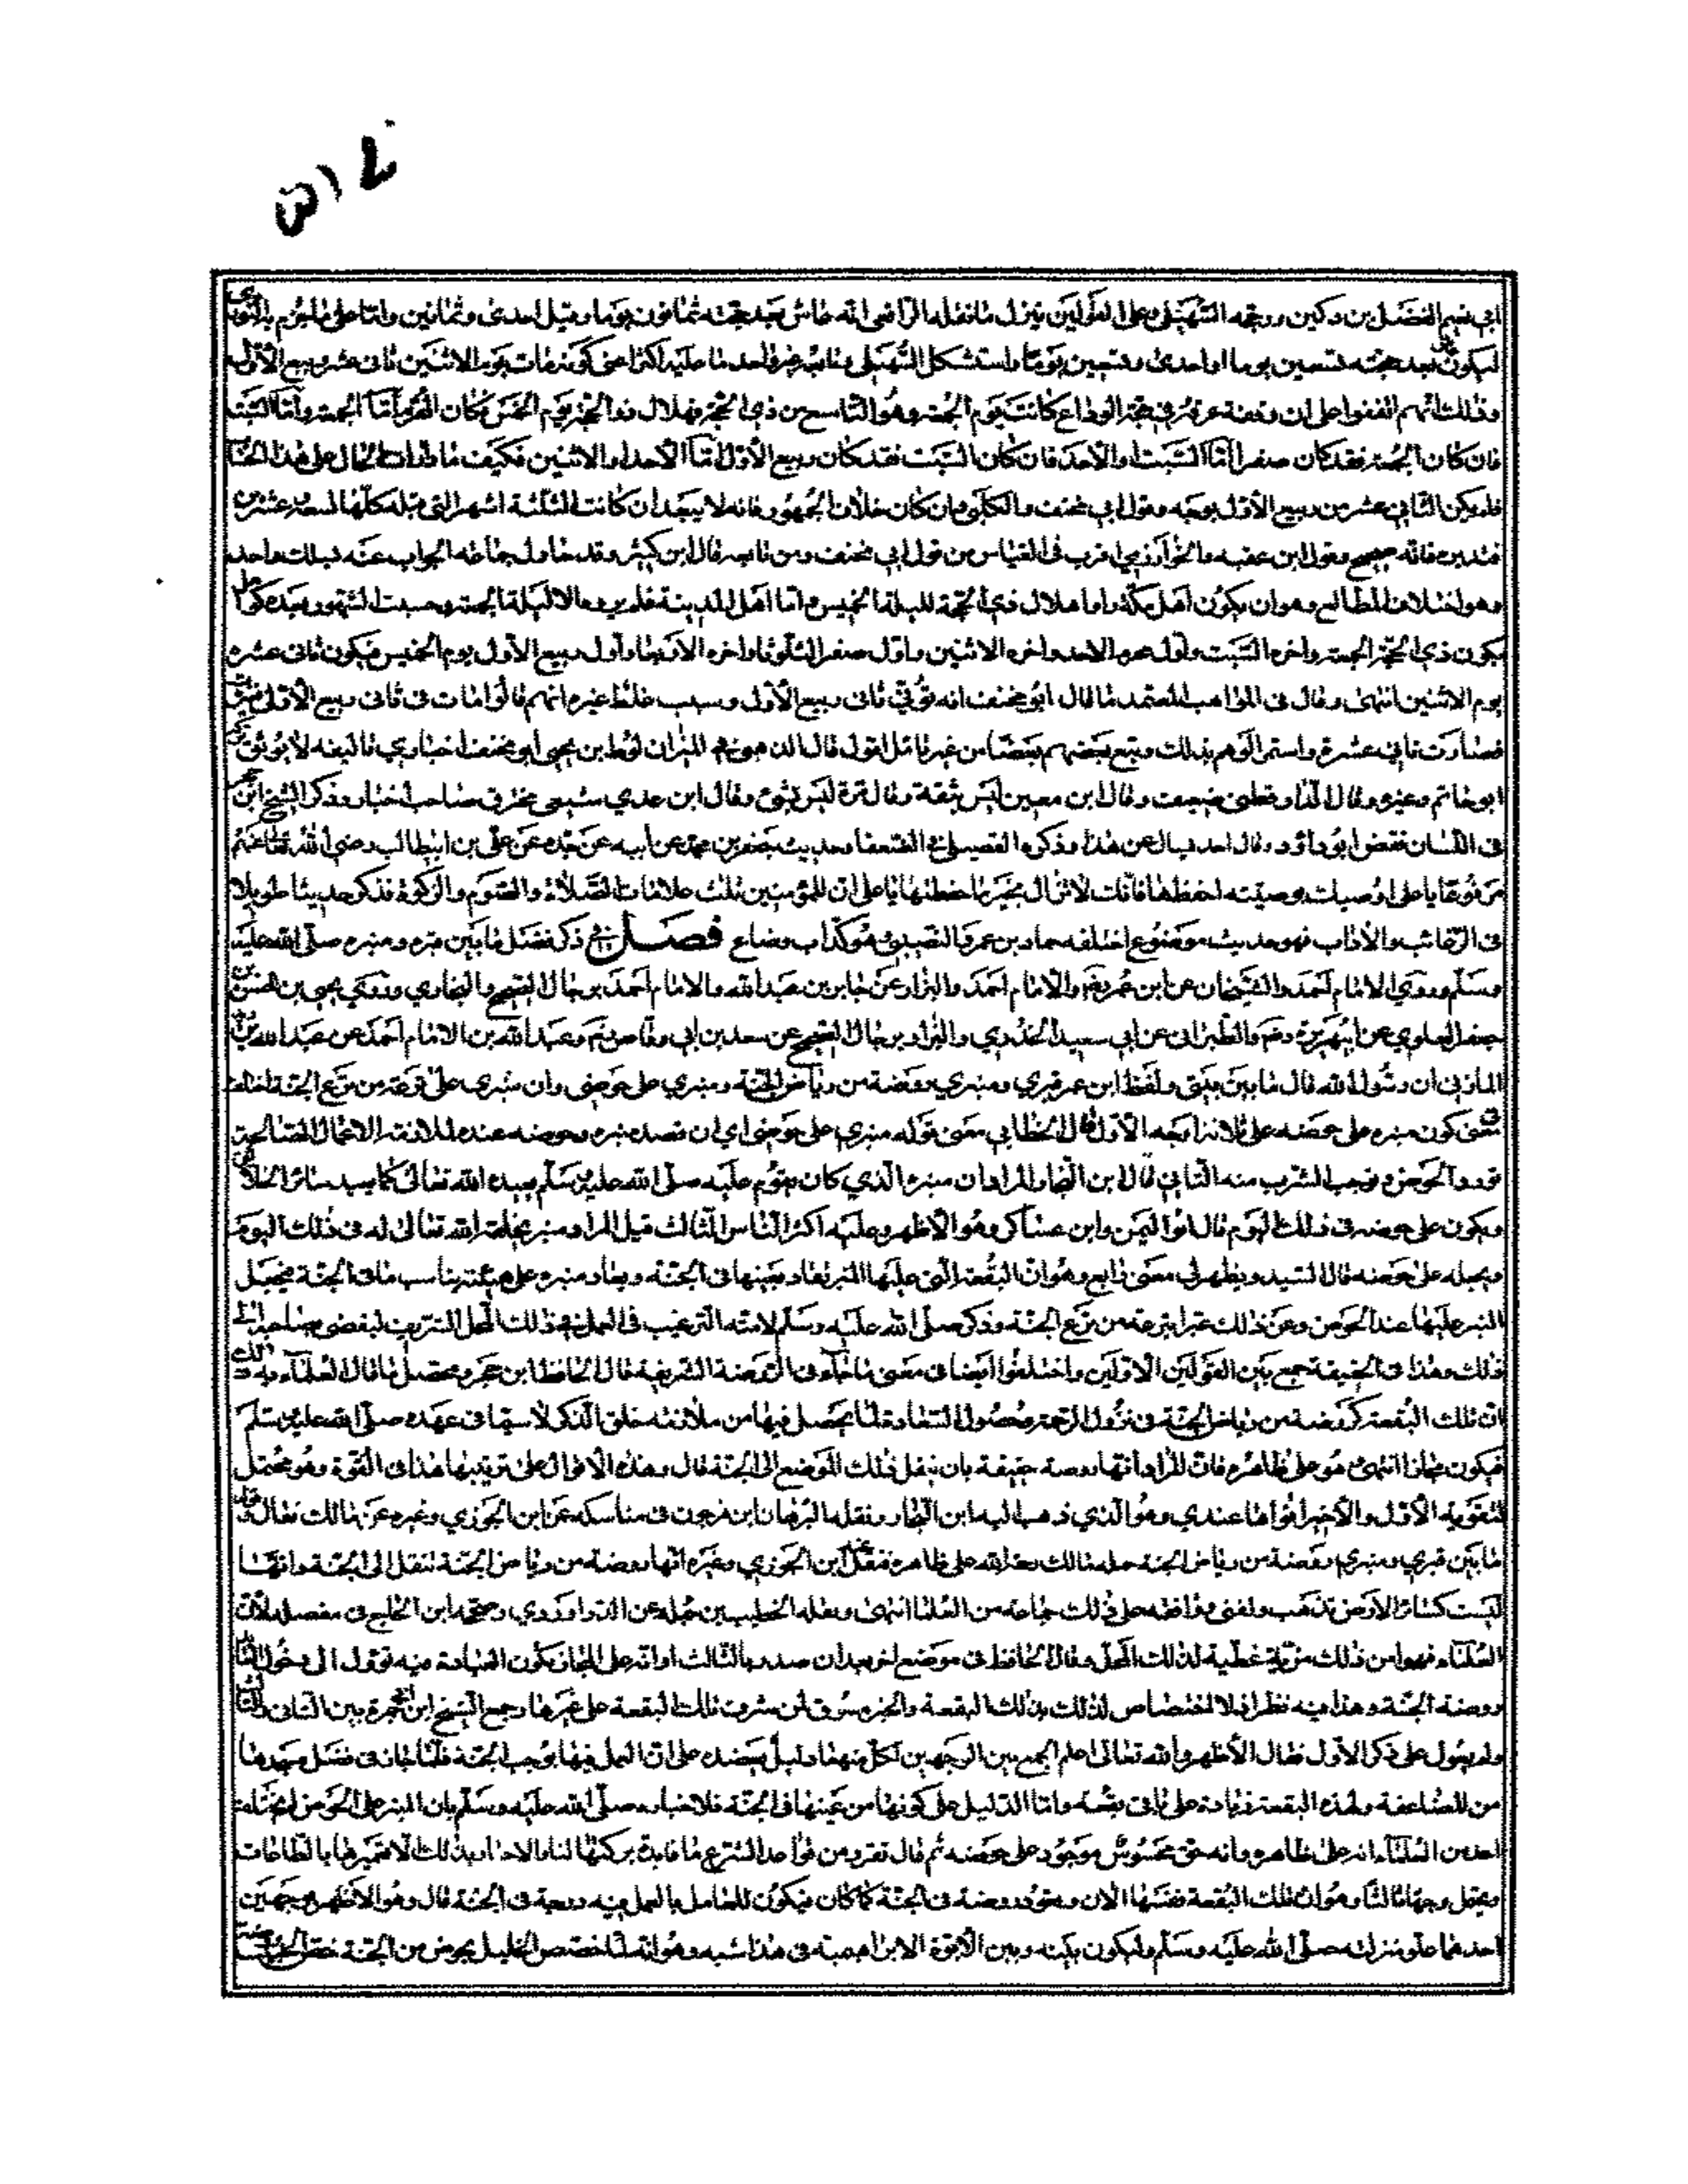 ابي نعيم الفضل بن دكين ورجحه السهيلي وعلى القولين ينزل ما نقله الرافعي انه عاش بعد حجته ثمانون يوما وقيل احدى وثمانين واما على ما جزم به النووي
فيكون بعد حجته تسعين يوما او احدى وتسعين يوما واستشكل السهيلي وتابعه غير واحد ما عليه اكثر اعني كونه مات يوم الاثنين ثاني عشر ربيع الأول
وذلك انهم اتفقوا على ان وقفة عرفة في حجة الوداع كانت يوم الجمعة وهو التاسع من ذي الحجة فهلال ذو الحجة يوم الخميس فكان المحرم اما الجمعة واما السبت
فان كان الجمعة فقد كان صفر اما السبت او الأحد فان كان السبت فقد كان ربيع الأول اما الأحد او الاثنين فكيف ما دارت الحال على هذا الحساب
فلم يكن الثاني عشر من ربيع الأول بوجه وقول ابي مخنف والكلبي وان كان خلاف الجمهور فانه لا يبعد ان كانت الثلثة اشهر التي قبله كلها تسعة وعشرين
فتدبره فانه صحيح وقول ابن عقبه والخوارزمي اقرب في القياس من قول ابي مخنف ومن تابعه قال ابن كثير وقد حاول جماعه الجواب عنه بمسلك واحد
وهو اختلاف المطالع وهو ان يكون اهل مكة راوا هلال ذي الحجة لليلة الخميس واما اهل المدينة فلم يروه الا ليلة الجمعة وحسبت الشهور بعده كوامل
فيكون ذي الحجة الجمعة واخره السبت واول محرم الاحد واخره الاثنين واول صفر الثلوثا واخره الأربعا واول ربيع الأول يوم الخميس فيكون ثاني عشره
يوم الاثنين انتهى وقال في المواهب المعتمد ما قال ابو مخنف انه توفي ثاني ربيع الأول وسبب غلط غيره انهم قالوا مات في ثاني ربيع الأول فغيرت
فصارت ثاني عشر واستمر الوهم بذلك وتبع بعضهم بعضا من غير تامل اقول قال الذهبي في الميزان لوط بن يحيى أبو مخنف اخباري تاليفه لا يوثق
ابو حاتم وغيره وقال الدارقطني ضعيف وقال ابن معين ليس بثقة وقال مرة ليس بشئ وقال ابن عدي شيعي محترق صاحب اخبار وذكر الشيخ ابن حجر
مرفوعا يا على اوصيك بوصيته احفظها فانك لا تزال بخير ما حفظتها يا على ان للمؤمنين ثلث علامات الصلاة والصوم والزكوة فذكر حديثا طويلا
في الرغائب والآداب فهو حديث موضوع اختلقه حماد بن عمرو النصيبي وهو كذاب وضاع فصل في ذكر فضل ما بين قبره ومنبره صلى الله عليه
وسلم وروي الامام احمد والشيخان عن ابن عمر والامام احمد والبزار عن جابر بن عبد الله والامام احمد برجال الصحيح والبخاري وروي يحيى بن الحسن بن
جعفر العلوي عن ابي هريرة والطبراني عن ابي سعيد الخدري والبزار برجال الصحيح عن سعد بن ابي وقاص وعبد الله بن الامام احمد عن عبد الله بن زيد
المازني ان رسول الله قال ما بين بيتي ولفظ ابن عمر قبري ومنبري روضة من رياض الجنة ومنبري على حوضي وان منبري على ترعة من ترع الجنة اختلف
في معنى كون منبره على حوضه على ثلاثة اوجه الأول قال الخطابي معنى قوله منبري على حوضي اي ان قصد منبره وحوضه عنده لملازمة الاعمال الصالحة
تورد الحوض وتوجب الشرب منه الثاني قال ابن النجار المراد ان منبره الذي كان يقوم عليه صلى الله عليه وسلم يعيده الله تعالى كما يعيد سائر الخلائق
ويكون على حوضه في ذلك اليوم قال ابو اليمن وابن عساكر وهو الأظهر وعليه اكثر الناس الثالث قيل المراد منبر يخلقه الله تعالى له في ذلك اليوم
ويجعله على حوضه قال السيد ويظهر لي معنى رابع وهو ان البقعة التي عليها المنبر تعاد بعينها في الجنة ويعاد منبره على هيئة تناسب ما في الجنة فيجعل
المنبر عليها عند الحوض وعن ذلك عبر بترعة من ترع الجنة وذكر صلى الله عليه وسلم لامته الترغيب في العمل في ذلك المحل الشريف ليفضى بصاحبه الى
ذلك وهذا في الحقيقة جمع بين القولين الأولين واختلفوا ايضا في معنى ما جاء في الروضة الشريفة قال الحافظ ابن حجر ومحصل ما قال العلماء في ذلك
ان تلك البقعة كروضة من رياض الجنة في نزول الرحمة وحصول السعادة بما يحصل فيها من ملازمة حلق الذكر لا سيما في عهده صلى الله عليه وسلم
فيكون مجازا انتهى او هو على ظاهره فان المراد انها روضة حقيقة بان ينقل ذلك الموضع الى الجنة قال وهذه الأقوال على ترتيبها هذا في القوة وهو محتمل
لتقوية الأول والأخير اقواها عندي وهو الذي ذهب اليه ابن النجار ونقله البرهان ابن فرحون في مناسكه عن ابن الجوزي وغيره عن مالك فقال وقوله
ما بين قبري ومنبري روضة من رياض الجنة حمله مالك رحمه الله على ظاهره فنقل عنه ابن الجوزي وغيره انها روضة من رياض الجنة تنقل الى الجنة وانها
ليست كسائر الأرض تذهب وتفنى ووافقه على ذلك جماعة من العلما انتهى ونقله الخطيب بن جمله عن الداوودي وصححه ابن الحاج في مفصله لأن
العلماء فهموا من ذلك مزية عظيمة لذلك المحل وقال الحافظ في موضع اخر بعد ان صدر بالثالث او انه على المجاز بكون العبادة فيه تؤول الى دخول العابد
روضة الجنة وهذا فيه نظر اذ لا اختصاص لذلك بتلك البقعة والخبر مسوق لمزيد شرف تلك البقعة على غيرها وجمع الشيخ ابن ابي جمرة بين الثاني والثالث
ولم يعول على ذكر الأول فقال الأظهر والله تعالى اعلم الجمع بين الوجهين لان لكل منهما دليل يعضده على ان العمل فيها يوجب الجنة فلما جاء في فضل مسجدها
من المضاعفة ولهذه البقعة زيادة على باقي بقعه واما الدليل على كونها من عينها في الجنة فلاخباره صلى الله عليه وسلم بان المنبر على الحوض لم يختلف
احد من العلماء انه على ظاهره وانه حق محسوس موجود على حوضه ثم قال تقرر من قواعد الشرع ما فايدة بركتها لنا والاخبار بذلك لا تعميرها بالطاعات
ويحتمل وجها ثالثا وهو ان تلك البقعة نفسها الان وتعود روضة في الجنة كما كان فيكون للعامل بالعمل فيه روضة في الجنة قال وهو الأظهر لوجهين
احدهما علو منزلته صلى الله عليه وسلم وليكون بينه وبين الأبوة الابراهيمية في هذا شبه وهو انه لما اختص الخليل بحجر من الجنة خص الحبيب